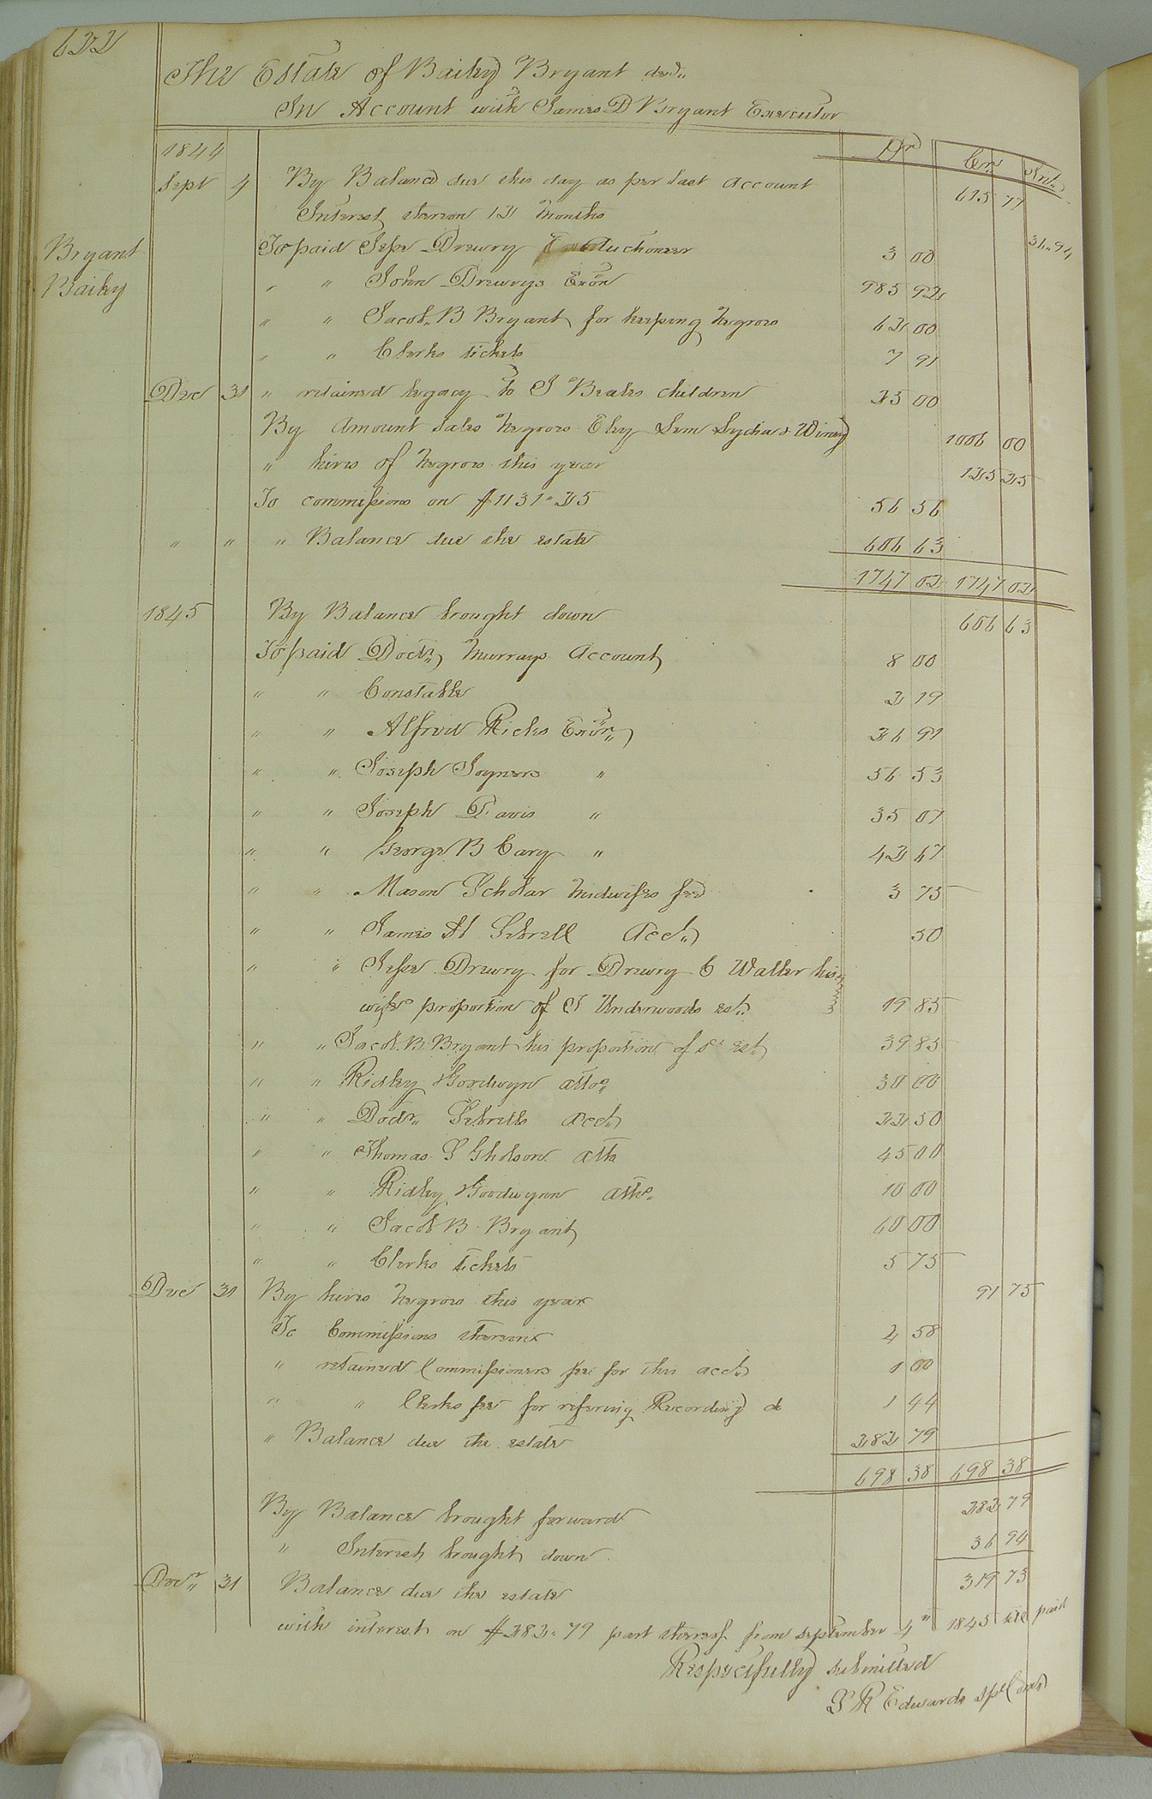 622
The Estate of Bailey Bryant decd.
In Account with James D Bryant Executor
Dr Cr Int.
1844
Sept 4 By Balance due this day as per last account 615 77
Interest thereon 12 Months 36.94
Bryant
Bailey
To paid Jesse Drewry Auctioneer 3 00
" " John Drewrys Exor 985 92
" " Jacob B Bryant for keeping Negroes 62 00
" " Clerks tickets 7 91
Dec 31 " retained legacy to J Beales children 25 00
By Amount Sales Negroes Eley Sem Lydia & Winny 1006 00
" hires of Negroes this year 125 25
To commissions on $1131.25 56 56
" " " Balance due the estate 606 63
1747 02 1747 02
1845 By Balance brought down 606 63
To paid Doctr. Murrays Account 8 00
" " Constable 2 19
" " Alfred Ricks Exor. 26 91
" " Joseph Joyners " 56 53
" " Joseph Davis " 35 07
" " George B Cary " 42 67
" " Mason Scholar Midwifes fee 3 75
" " James H Sebrell Acct. 50
" " Jesse Drewry for Drewry C Walker his
wifes proportion of J Underwoods est. 19 85
" " Jacob B Bryant his proportion of sd. est. 39 85
" " Ridley Goodwyn atto. 30 00
" " Doctr. Sebrells Acct. 22 50
" " Thomas S Gholson Atto 45 00
" " Ridley Goodwynn Atto. 10 00
" " Jacob B Bryant 60 00
" " Clerks tickets 5 75
Dec 31 By hires Negroes this year 91 75
To Commissions thereon 4 58
" retained Commissioners fee for this acct. 1 00
" " Clerks fee for refering Recording do 1 44
" Balance due the estate 282 79
698 38 698 38
By Balance brought forward 282 79
" Interest brought down 36 94
Decr. 31 Balance due the estate 319 73
with interest on $282.79 part thereof from september 4th 1845 till paid
Respectfully submitted
R Edwards Spl Com